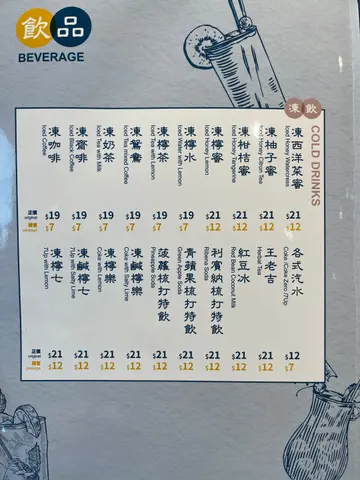 飲品
BEVERAGE
凍飲
COLD DRINKS
凍西洋菜蜜
Iced Honey Watercress
$21
$12
凍柚子蜜
Iced Honey Citron Tea
$21
$12
凍柑桔蜜
Iced Honey Tangerine
$21
$12
凍檸蜜
Iced Honey Lemon
$21
$12
凍檸水
Iced Water with Lemon
$19
$7
凍檸茶
Iced Tea with Lemon
$19
$7
凍鴛鴦
Iced Tea mixed Coffee
$19
$7
凍奶茶
Iced Tea with Milk
$19
$7
凍齋啡
Iced Black Coffee
$19
$7
凍咖啡
Iced Coffee
$19
$7
正價
original
跟餐
package
各式汽水
Coke /Coke Zero /7Up
$12
$7
王老吉
Herbal Tea
$21
$12
紅豆冰
Red Bean Coconut Milk
$21
$12
利賓納梳打特飲
Ribena Soda
$21
$12
青蘋果梳打特飲
Green Apple Soda
$21
$12
菠蘿梳打特飲
Pineapple Soda
$21
$12
凍鹹檸樂
Coke with Salty Lime
$21
$12
凍檸樂
Coke with Lemon
$21
$12
凍鹹檸七
7Up with Salty Lime
$21
$12
凍檸七
7Up with Lemon
$21
$12
正價
original
跟餐
package